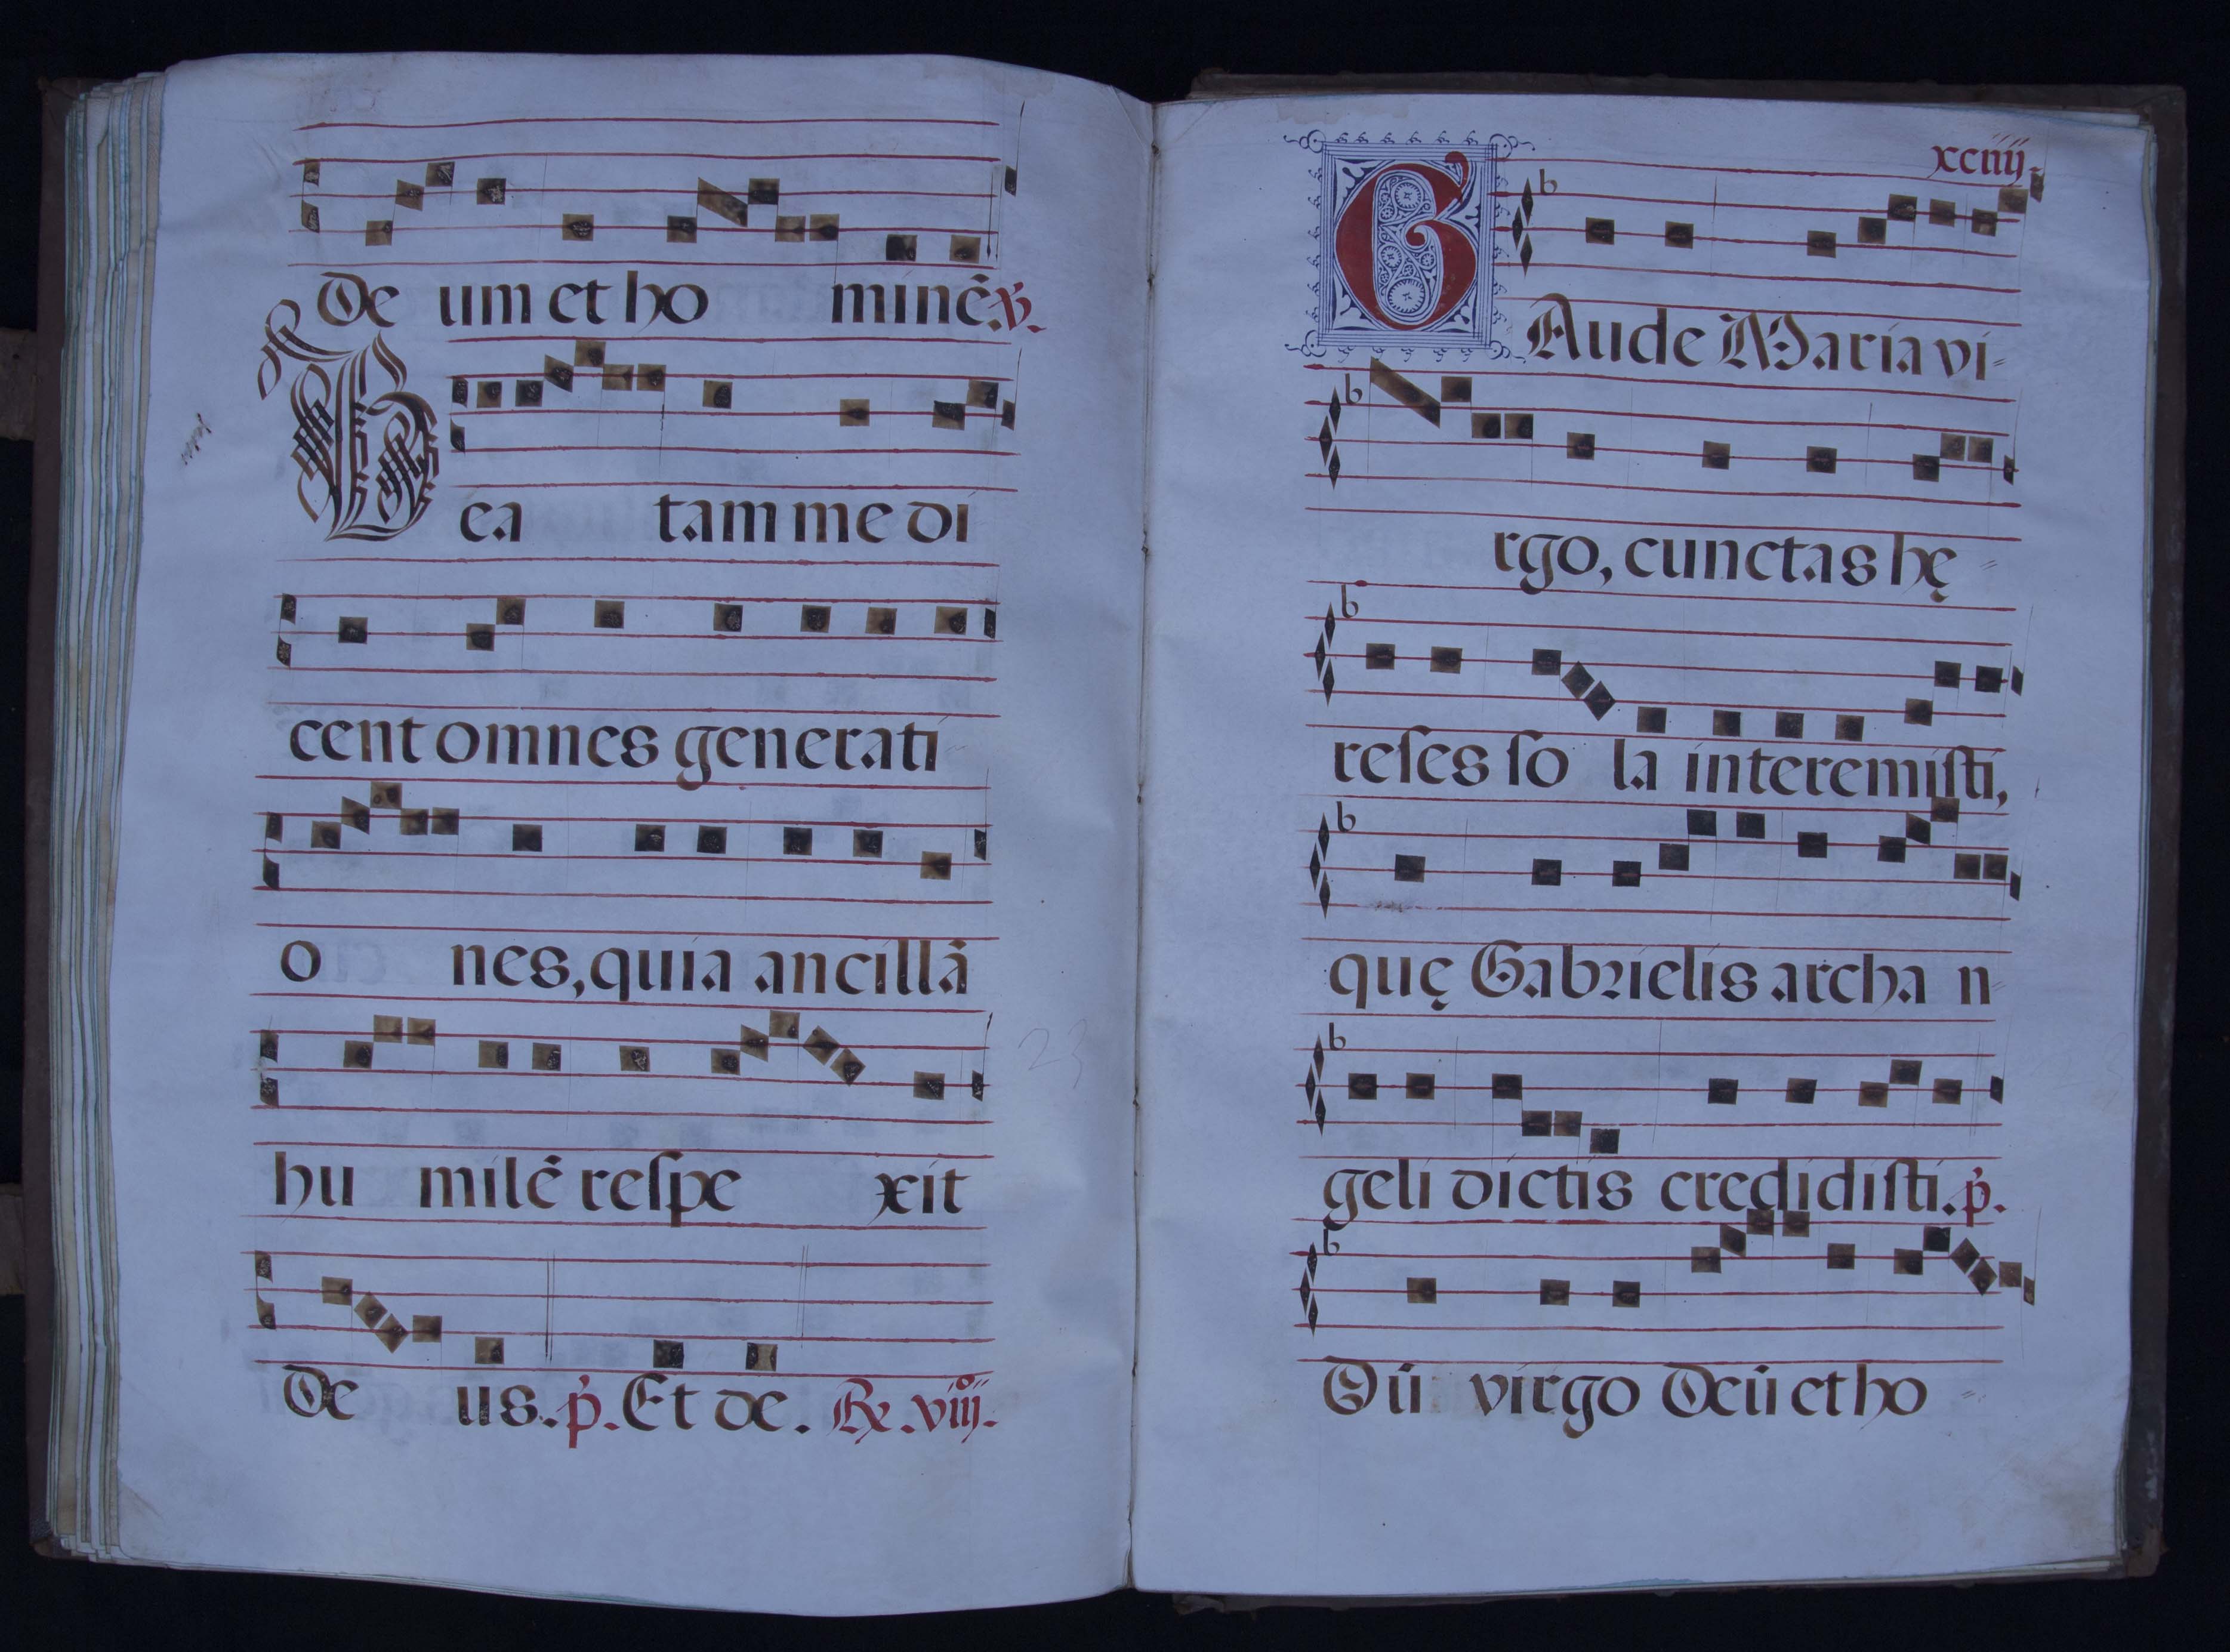 De um et ho minē. ℣.
Bea tam me di
cent omnes generati
o nes, quia ancillā
hu milē respe xit
De us. p̄. Et de. Re. viijº.
23
xciiij.
GAude Maria vi-
rgo, cunctas hę-
reſes ſo la interemiſti,
quę Gabrielis archa n-
geli dictis credidiſti. p̄.
Dū virgo Deū et ho-